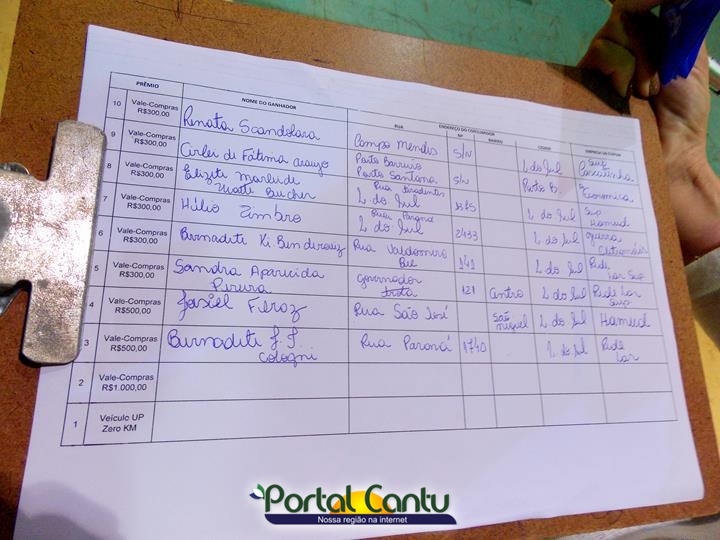 PRÊMIO NOME DO GANHADOR ENDEREÇO DO CONSUMIDOR
RUA Nº BAIRRO CIDADE EMPRESA DO CUPOM
10 Vale-Compras R$300,00 Renata Scandolara Campo Mendes S/N L do Sul Sup
9 Vale-Compras R$300,00 Cirlei de Fátima Araujo Porto Barreiro Porto Santana S/N Porto B.
8 Vale-Compras R$300,00 Elizete Marlei de Rua L do Sul L do Sul Sup
7 Vale-Compras R$300,00 Hélio Zimbro Rua Paraná L do Sul 2433 L do Sul
6 Vale-Compras R$300,00 Bernadete Rua Valdomiro 141 L do Sul Rede Lar Sup
5 Vale-Compras R$300,00 Sandra Aparecida Pereira Governador 121 Centro L do Sul Rede Lar Sup
4 Vale-Compras R$500,00 Jasiel Feroz Rua São José São Miguel L do Sul Hamud
3 Vale-Compras R$500,00 Bernadete Cologni Rua Paraná 1740 L do Sul Rede Lar
2 Vale-Compras R$1.000,00
1 Veículo UP Zero KM
Portal Cantu
Nossa região na internet